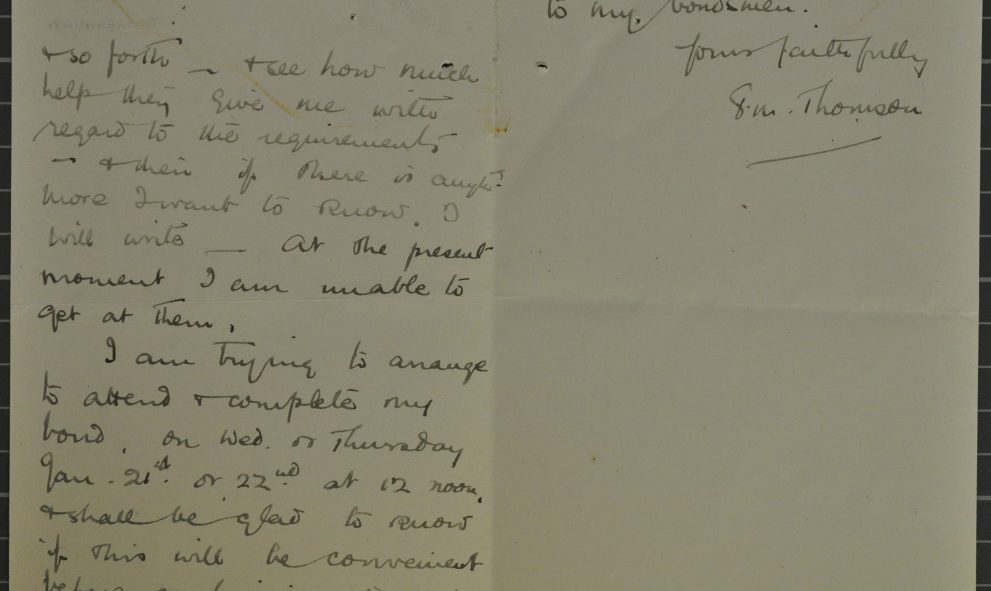 & so forth — & see how much
help they give me with
regard to the requirements
— & then if there is anyth.
more I want to know, I
will write — At the present
moment I am unable to
get at them.
I am trying to arrange
to attend & complete my
bond, on Wed. or Thursday
Jan. 21st. or 22nd at 12 noon,
& shall be glad to know
if this will be convenient
before
to my bondsmen.
Yours faithfully
S.M. Thomson